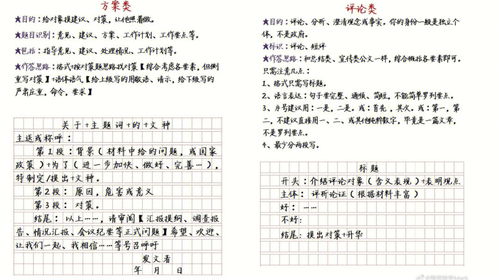 方案类
★目的:给对象提建议、对策,让他照着做。
★题目识别:意见、建议、方案、工作计划、工作要点等。
★包括:指导意见、建议、处理情况、工作计划等。
★作答思路:格式+按对策题思路找对策【综合考虑各要素,但侧
重写对策】+语体语气【给上级写的用敬语、请示,给下级写的
严肃庄重,命令,要求】
关于+主题词+的+文种
主送或称呼:
第1段:背景(材料中给的问题,或国家
政策)+为了(进一步加快、做好、完善…),
特制定/提出+文种。
第2段:原因,危害或意义
第3段:对策。
结尾:以上……,请审阅【汇报提纲、调查报
告、情况汇报、会议纪要等正式问题】希望、欢迎、
让我们一起、我相信……等号召呼吁
发文者
年 月 日
评论类
★目的:评论、分析、澄清观念或事实。你的身份一般是独立个
体,不是政府。
★标识:评论、短评
★作答思路:和总结类、宣传类公文一样,综合概括各要素即可。
只需注意几点:
1、格式只需写标题。
2、语言表述:句子要完整、通顺、简短,不能简单罗列要点。
3、分号建议用:一是,二是。或:首先,其次。或:第一,第
二。不建议直接用一、二或其他纯粹数字,毕竟是一篇文章,
不是罗列要点。
4、最少分两段写。
标题
开头:介绍评论对象(含义表现)+表明观点
主体:评析论证(根据材料丰富)
好:……
不好:
结尾:提出对策+升华